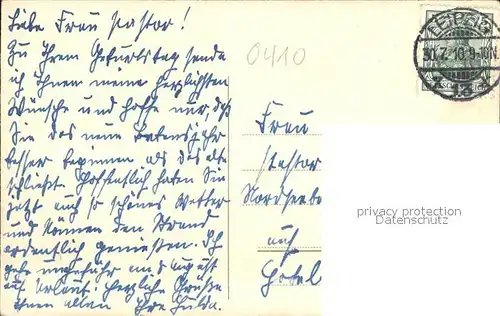 Liebe Frau Pastor!
Zu Ihrem Geburtstag sende
ich Ihnen meine herzlichsten
Wünsche und hoffe nur, daß
Sie das neue Lebensjahr
besser beginnen als das alte
schließt. Hoffentlich haben Sie
jetzt auch so schönes Wetter
und können den Strand
ordentlich genießen. Ich
gehe ungefähr am August
auf Urlaub. Herzliche Grüße
Ihnen allen Ihre Hulda.
0410
LEIPZIG
30.7.10.9-10N.
13
Frau
Pastor
Nordseeba
auf
Hotel
privacy protection
Datenschutz